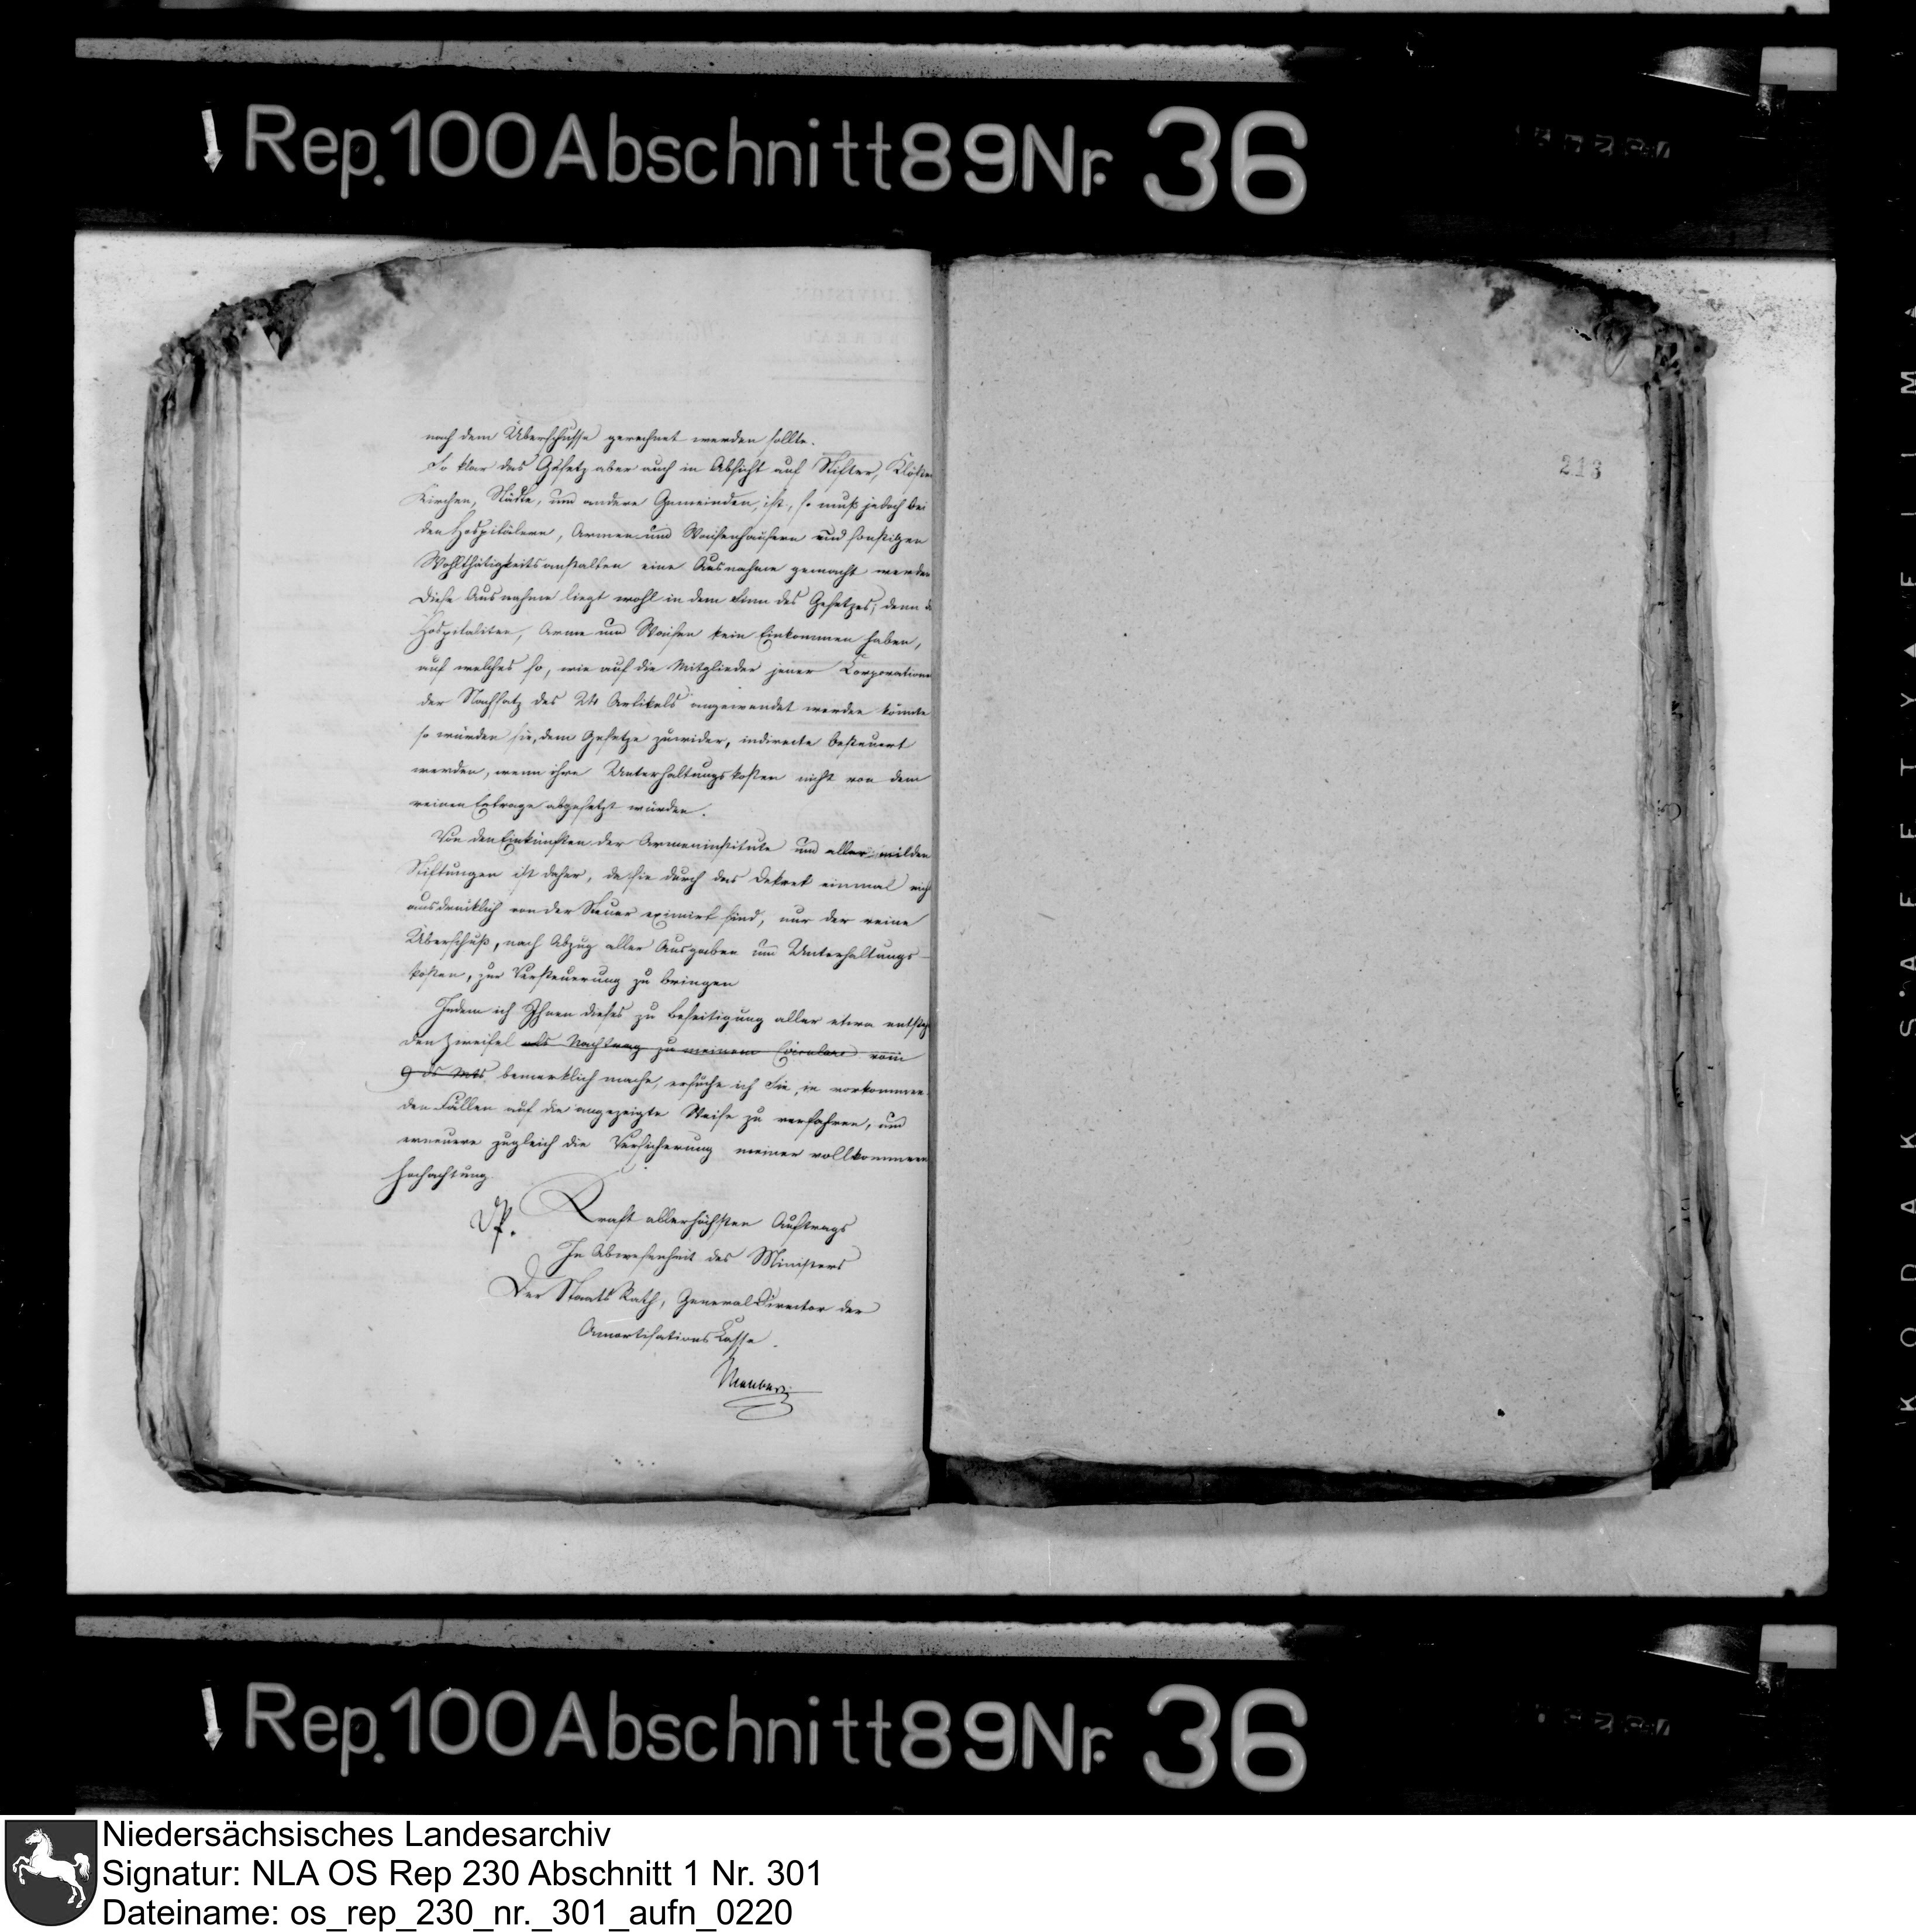 Rep. 100 Abschnitt 89 Nr. 36
nach dem Überschusse gerechnet werden sollte.
So klar das Gesetz aber auch in Absicht auf Stifter, Klöster
Kirchen, Städte, und andere Gemeinden, ist, so muß jedoch bei
den Hospitälern, Armen und Waisenhäusern und sonstigen
Wohlthätigkeitsanstalten eine Ausnahme gemacht werden
Diese Ausnahme liegt wohl in dem Sinn des Gesetzes, denn da
Hospitaliten, Arme und Waisen kein Einkommen haben,
auf welches so, wie auf die Mitglieder jener Corporationen
der Nachsatz des Artikels angewendet werden könnte
so würden sie, dem Gesetze zuwider, indirecte besteuert
werden, wenn ihre Unterhaltungskosten nicht von dem
reinen Ertrage abgesetzt würden.
Von den Einkünften der Armeninstitute und aller milden
Stiftungen ist daher, da sie durch das Dekret einmal nicht
ausdrücklich von der Steuer eximirt sind, nur der reine
Überschuß, nach Abzug aller Ausgaben und Unterhaltungs-
kosten, zur Versteuerung zu bringen
Indem ich Ihnen dieses zu Beseitigung aller etwa entsteh
den Zweifel als Nachtrag zu meinem Circulare vom
9 ds Mts bemerklich mache, ersuche ich Sie, in vorkommen
den Fällen auf die angezeigte Weise zu verfahren, und
erneuere zugleich die Versicherung meiner vollkommenen
Hochachtung
Kraft allerhöchsten Auftrags
In Abwesenheit des Ministers
Der Staats Rath, General Director der
Amortisations Casse.
213
Rep. 100 Abschnitt 89 Nr. 36
KODAK SAFETY FILM
Niedersächsisches Landesarchiv
Signatur: NLA OS Rep 230 Abschnitt 1 Nr. 301
Dateiname: os_rep_230_nr._301_aufn_0220